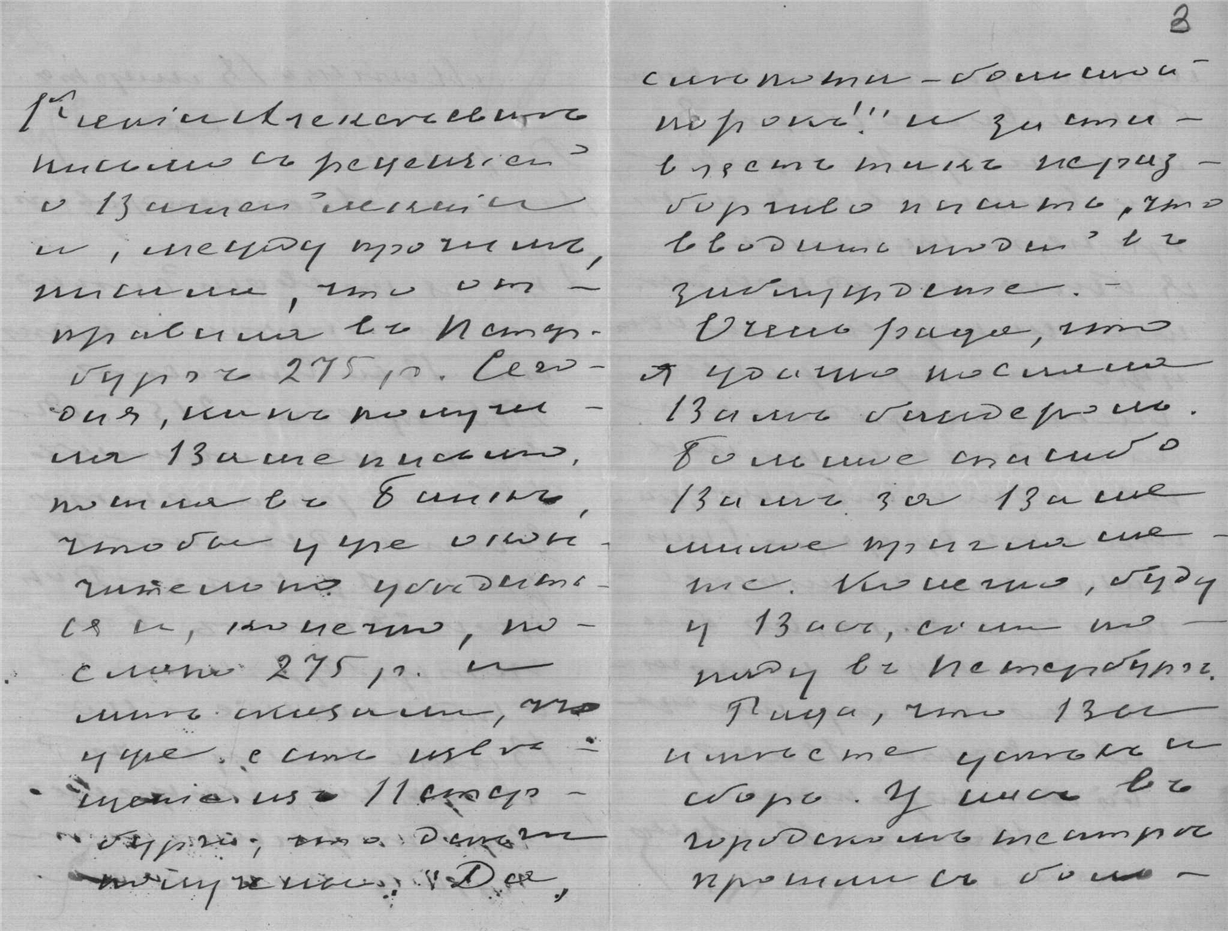 Ксенiи Алексѣевнѣ
письмо съ рецензiей
о Вашей лекцiи
и, между прочимъ,
писала, что от-
правила въ Петер-
бургъ 275 р. Сего-
дня, какъ получи-
ла Ваше письмо,
пошла въ Банкъ,
чтобы уже окон-
чательно убѣдить-
ся и, конечно, по-
слано 275 р. и
мнѣ сказали, что
уже есть извѣ-
щенiе изъ Петер-
бурга, что деньги
получены. Да,
3
слѣпота – большой
порокъ!! и заста-
вляетъ такъ нераз-
борчиво писать, что
вводитъ людей въ
заблужденie. –
Очень рада, что
я удачно послала
Вамъ бандероль.
Большое спасибо
Вамъ за Ваше
милое приглаше-
нie. Конечно, буду
у Васъ, если по-
паду въ Петербургъ.
Рада, что Вы
имѣете успѣхъ и
сборъ. У насъ въ
городскомъ театрѣ
прошли съ боль-